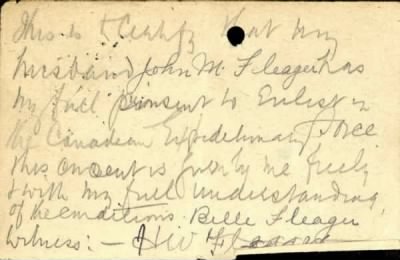 This is to Certify that my
husband John M. Fleager has
my full consent to Enlist in
the Canadian Expeditionary Force
this consent is given by me freely
& with my full understanding
of the conditions. Belle Fleager
Witness: —